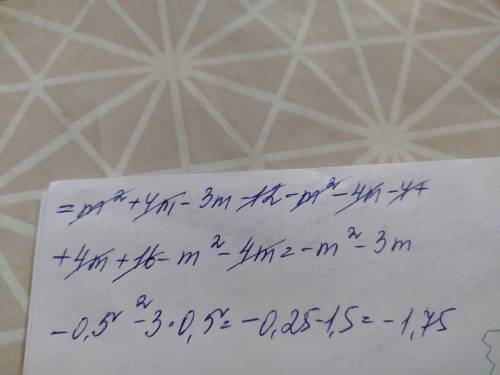 = m² + 4m - 3m - 12 - m² - 4m - 4 +
+ 4m + 16 - m² - 4m = - m² - 3m
- 0,5² - 3 · 0,5 = - 0,25 - 1,5 = - 1,75